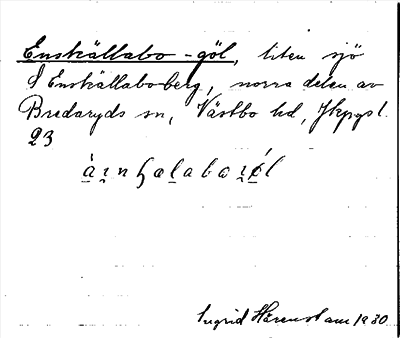 Enskällabo-göl, liten sjö
S Enskällabo-berg, norra delen av
Bredaryds sn, Västbo hd, Jkpgs l.
23
Ingrid 1930